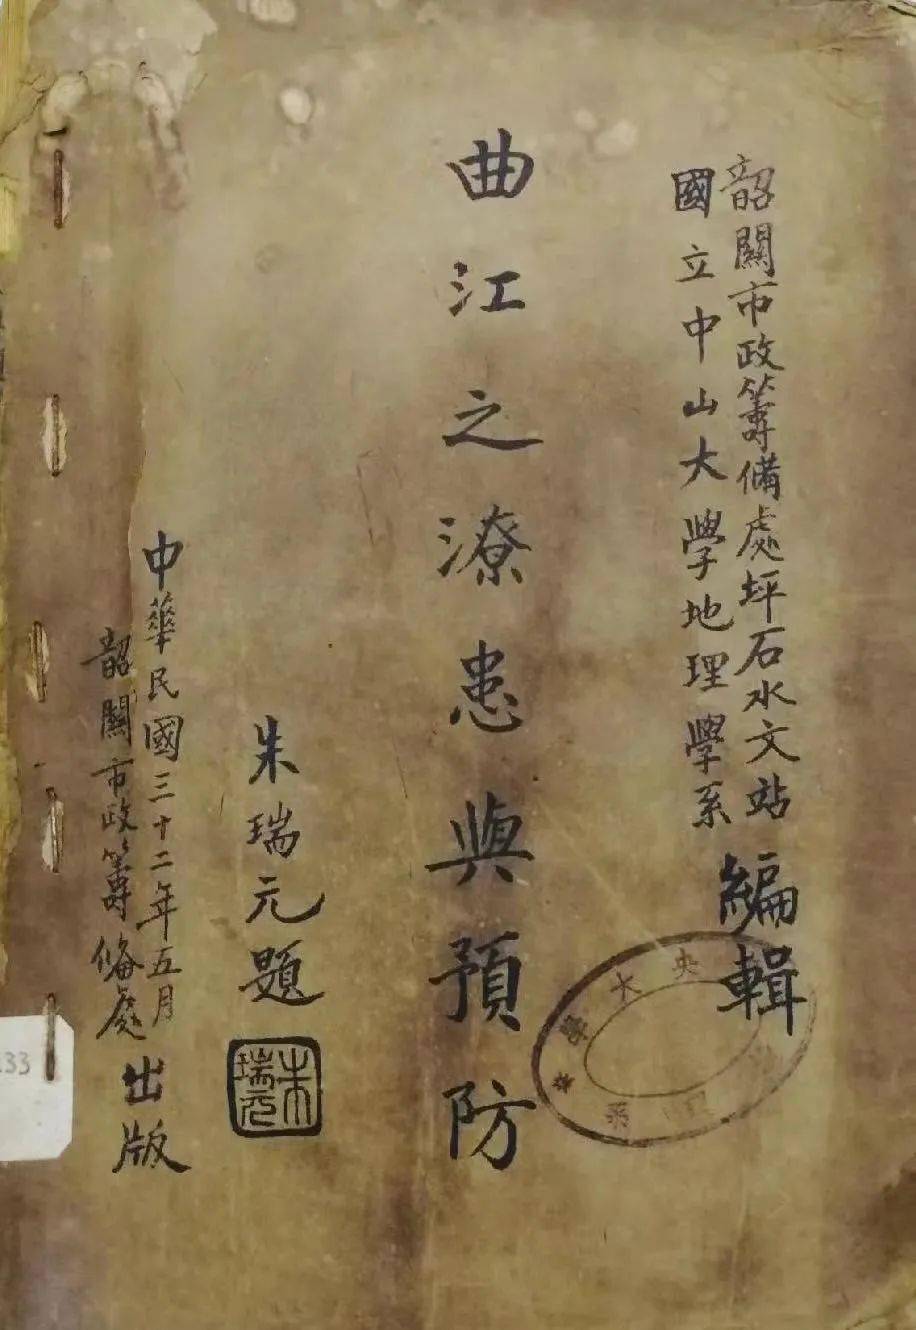 韶關市政籌備處坪石水文站
國立中山大學地理學系
編輯
曲江之潦患與預防
朱瑞元題
朱瑞元
中華民國三十二年五月
韶關市政籌俻處
出版
央大學
系
33